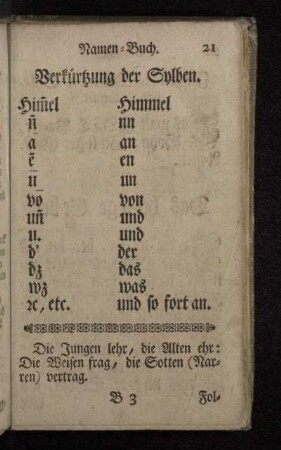 Namen-Buch. 21
Verkürtzung der Sylben.
Him̄el Himmel
n̄ nn
ā an
ē en
ū un
vō von
un̄ und
u. und
d' der
dz das
wz was
ꝛc, etc. und so fort an.
Die Jungen lehr, die Alten ehr:
Die Weisen frag, die Sotten (Nar-
ren) vertrag.
B 3 Fol-